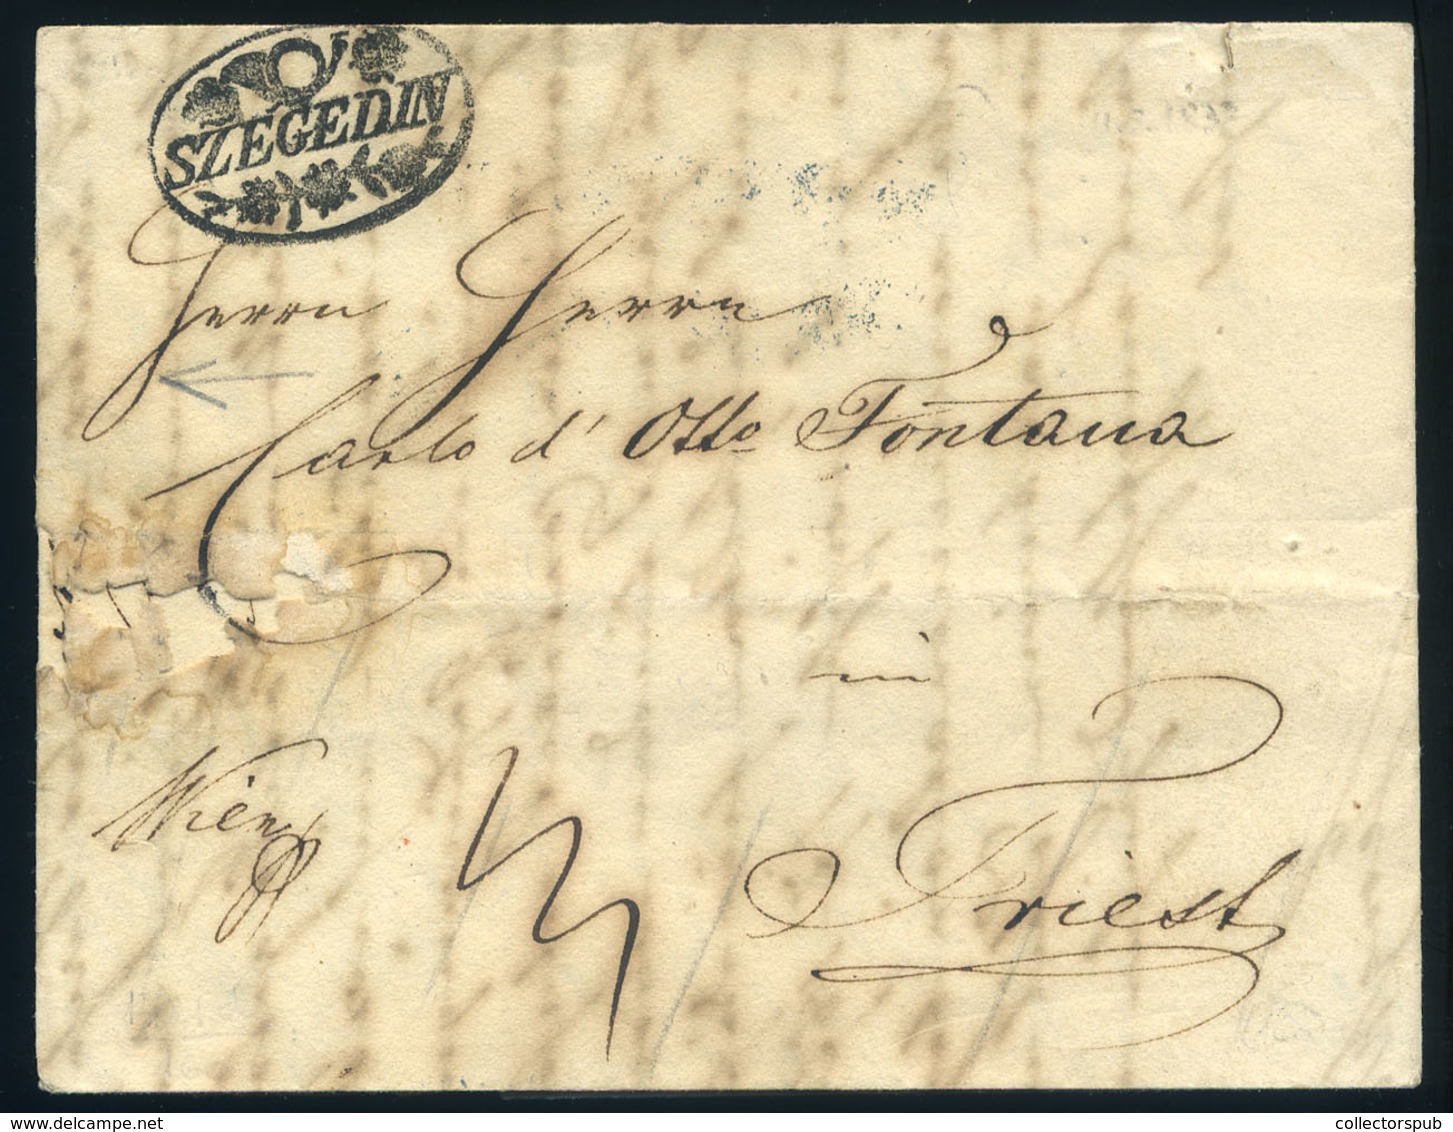 SZEGEDIN
Herrn Herrn
Carlo d' Otto Fontana
in
Wien
Triest
collectorspub